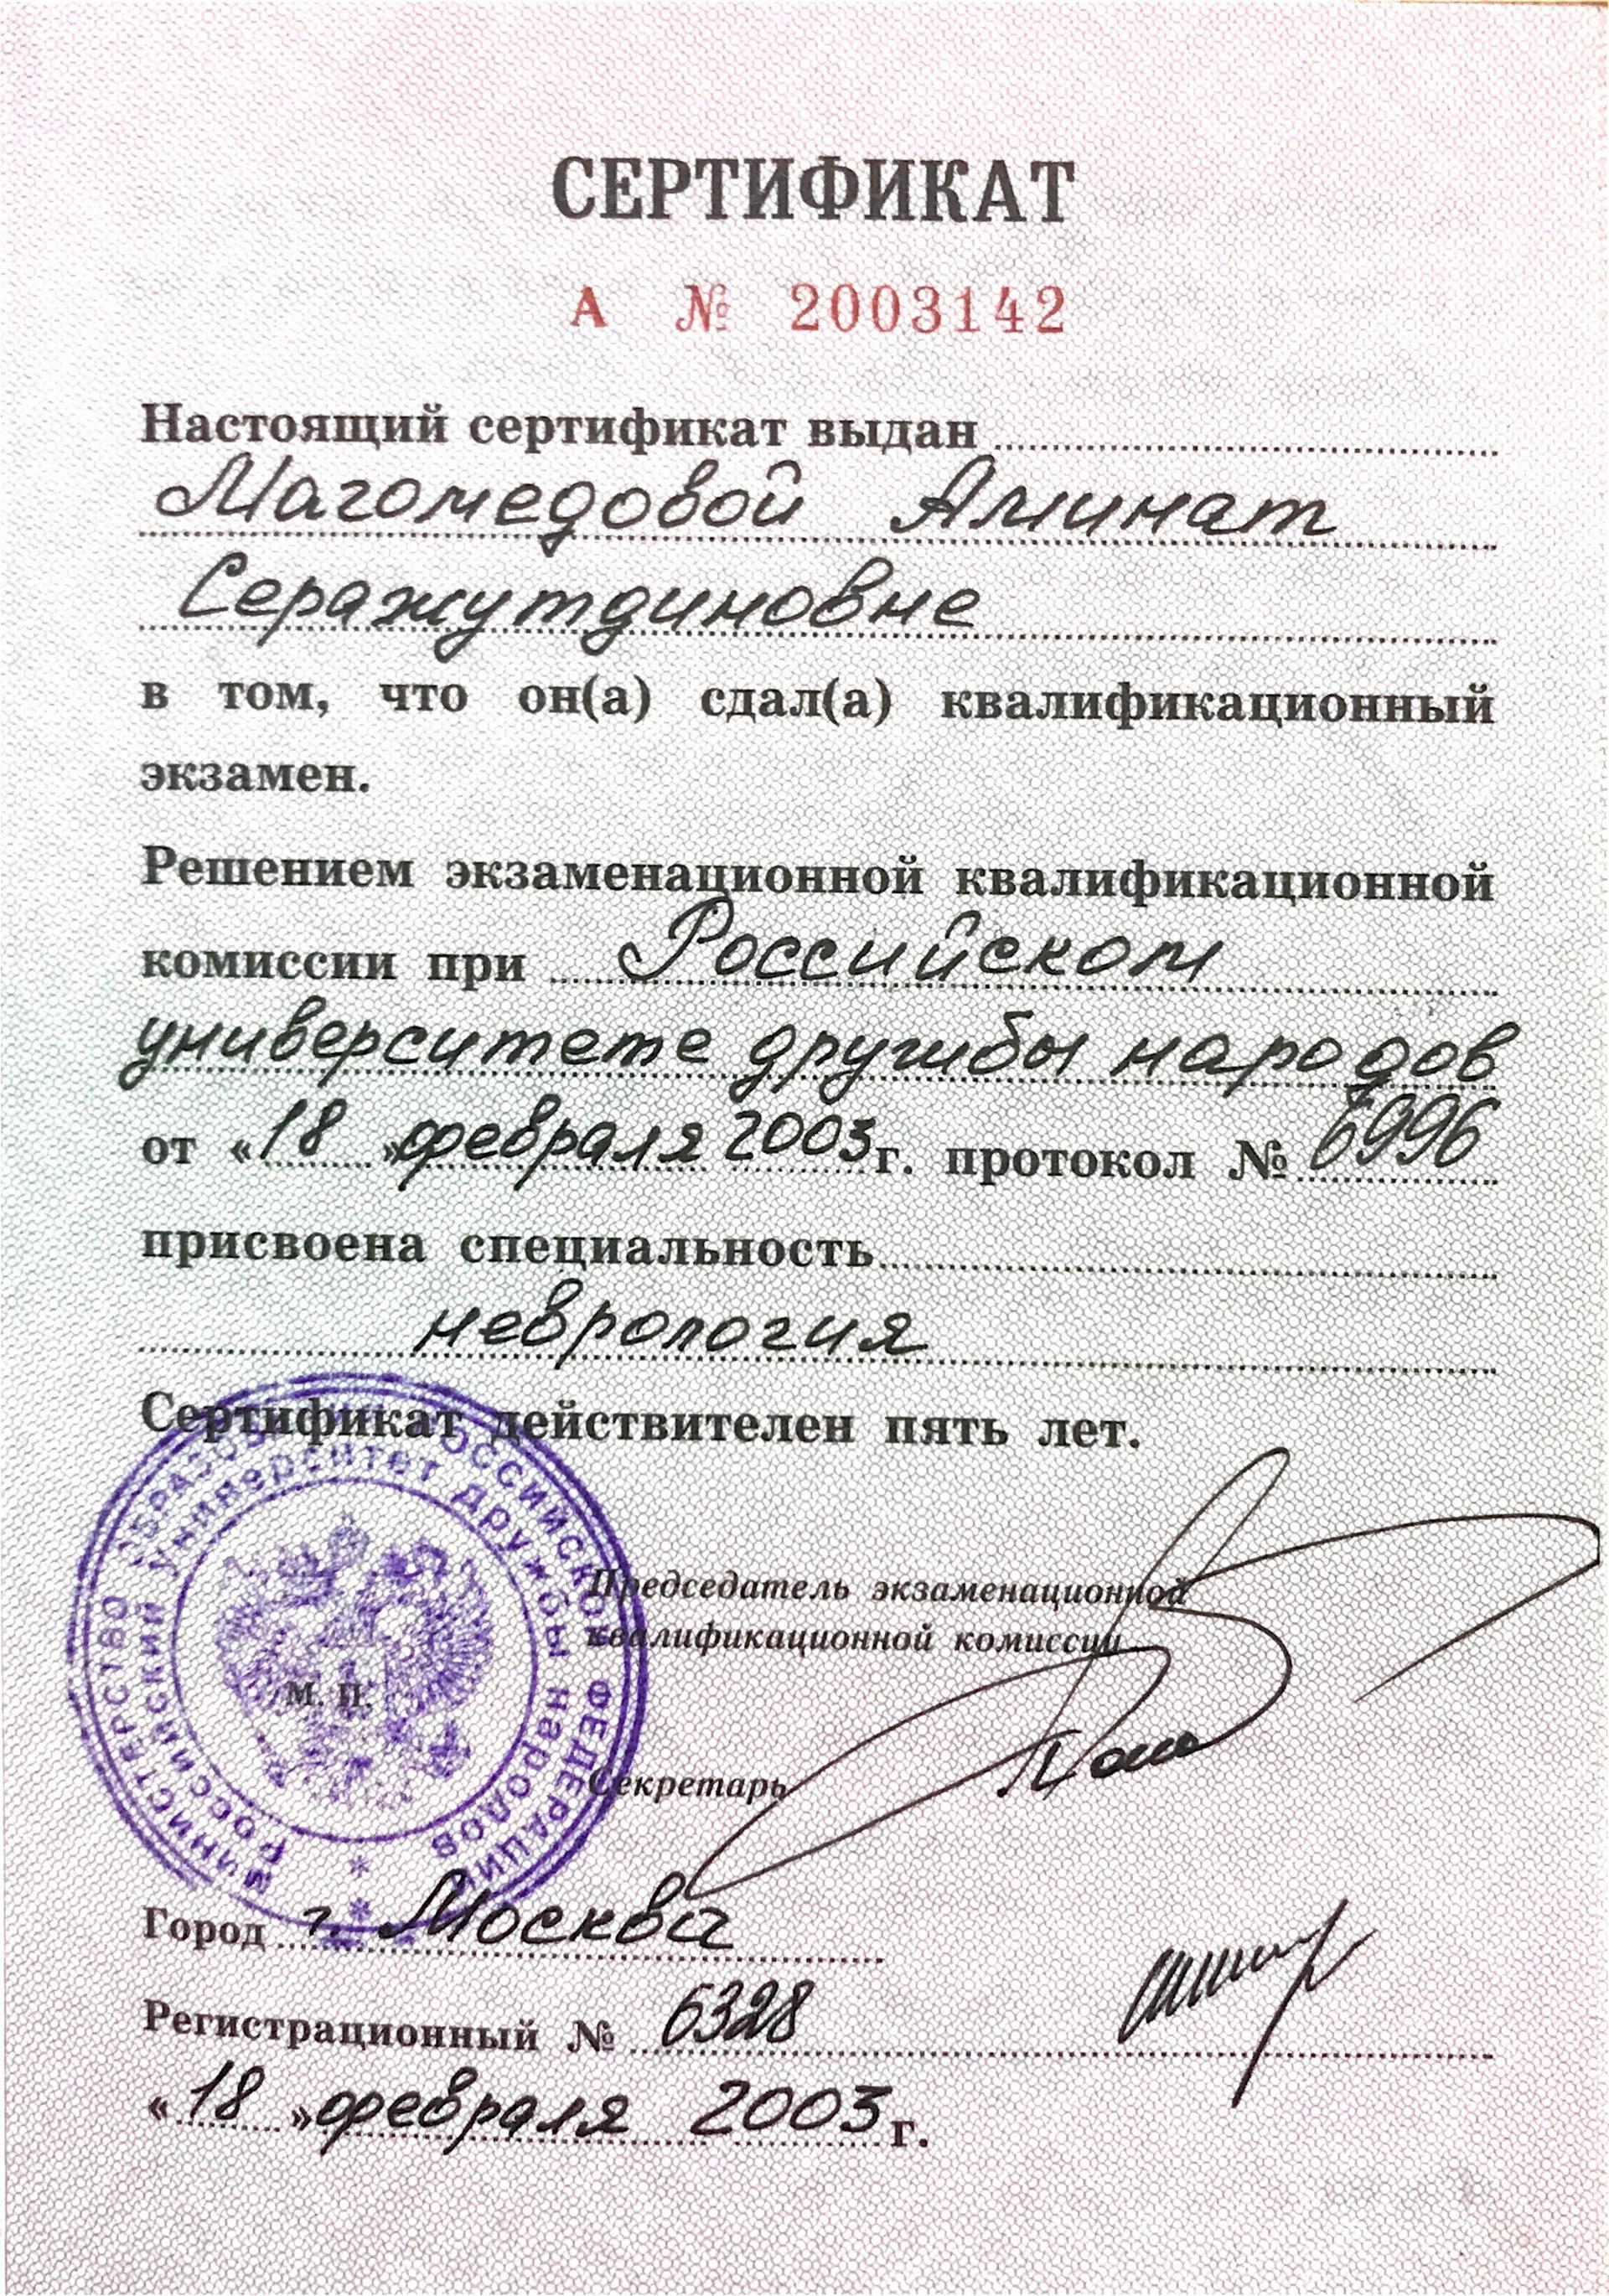 СЕРТИФИКАТ
А № 2003142
Настоящий сертификат выдан
Магомедовой Аминат
Серажутдиновне
в том, что он(а) сдал(а) квалификационный
экзамен.
Решением экзаменационной квалификационной
комиссии при Российском
университете дружбы народов
от «18» февраля 2003 г. протокол № 6996
присвоена специальность
неврология
Сертификат действителен пять лет.
МИНИСТЕРСТВО ОБРАЗОВАНИЯ РОССИЙСКОЙ ФЕДЕРАЦИИ
Российский университет дружбы народов
Председатель экзаменационной
квалификационной комиссии
М. П.
Секретарь
Город г. Москва
Регистрационный № 6328
«18» февраля 2003 г.